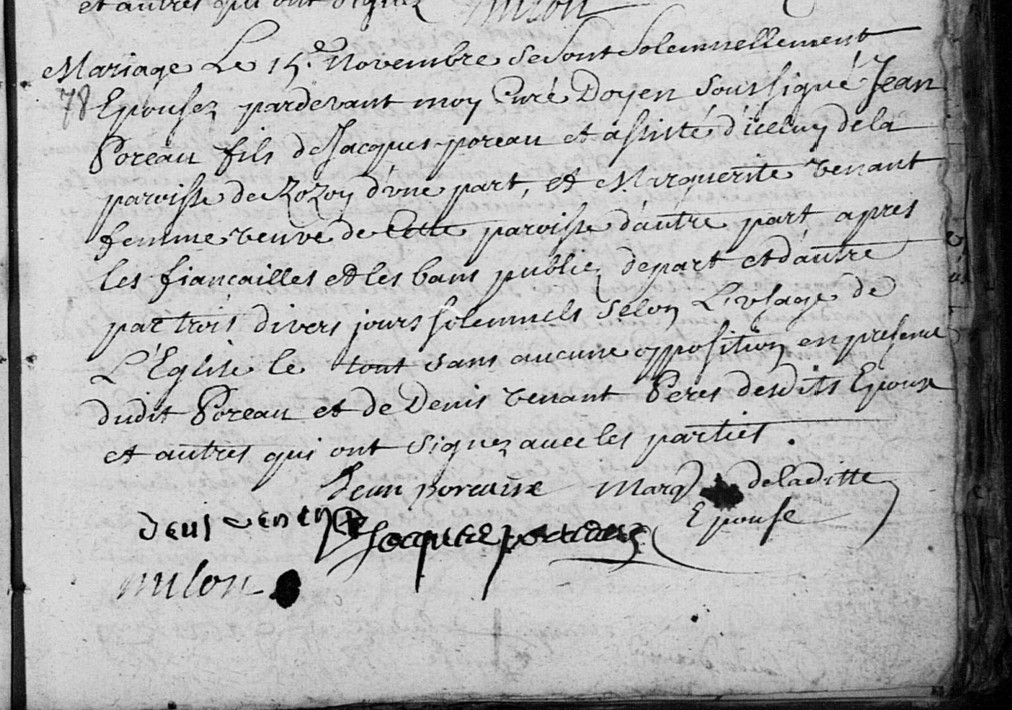 et autres qui ont signez milon
Mariage Le 15e Novembre se sont solemnellement
78 Epousez pardevant moy Curé Doyen soussigné Jean
Poreau fils de Jacques poreau et assisté d'iceluy de la
paroisse de Rozoy d'une part, et Marguerite venant
femme veuve de cette paroisse d'autre part apres
les fiançailles et les bans publiez de part et d'autre
par trois divers jours solemnels selon L'usage de
L'Eglise le tout sans aucune opposition en presence
dudit Poreau et de Denis venant Peres desdits Epoux
et autres qui ont signez avec les parties.
Jean poreaux marq de laditte
Epouse
Jacques
milon